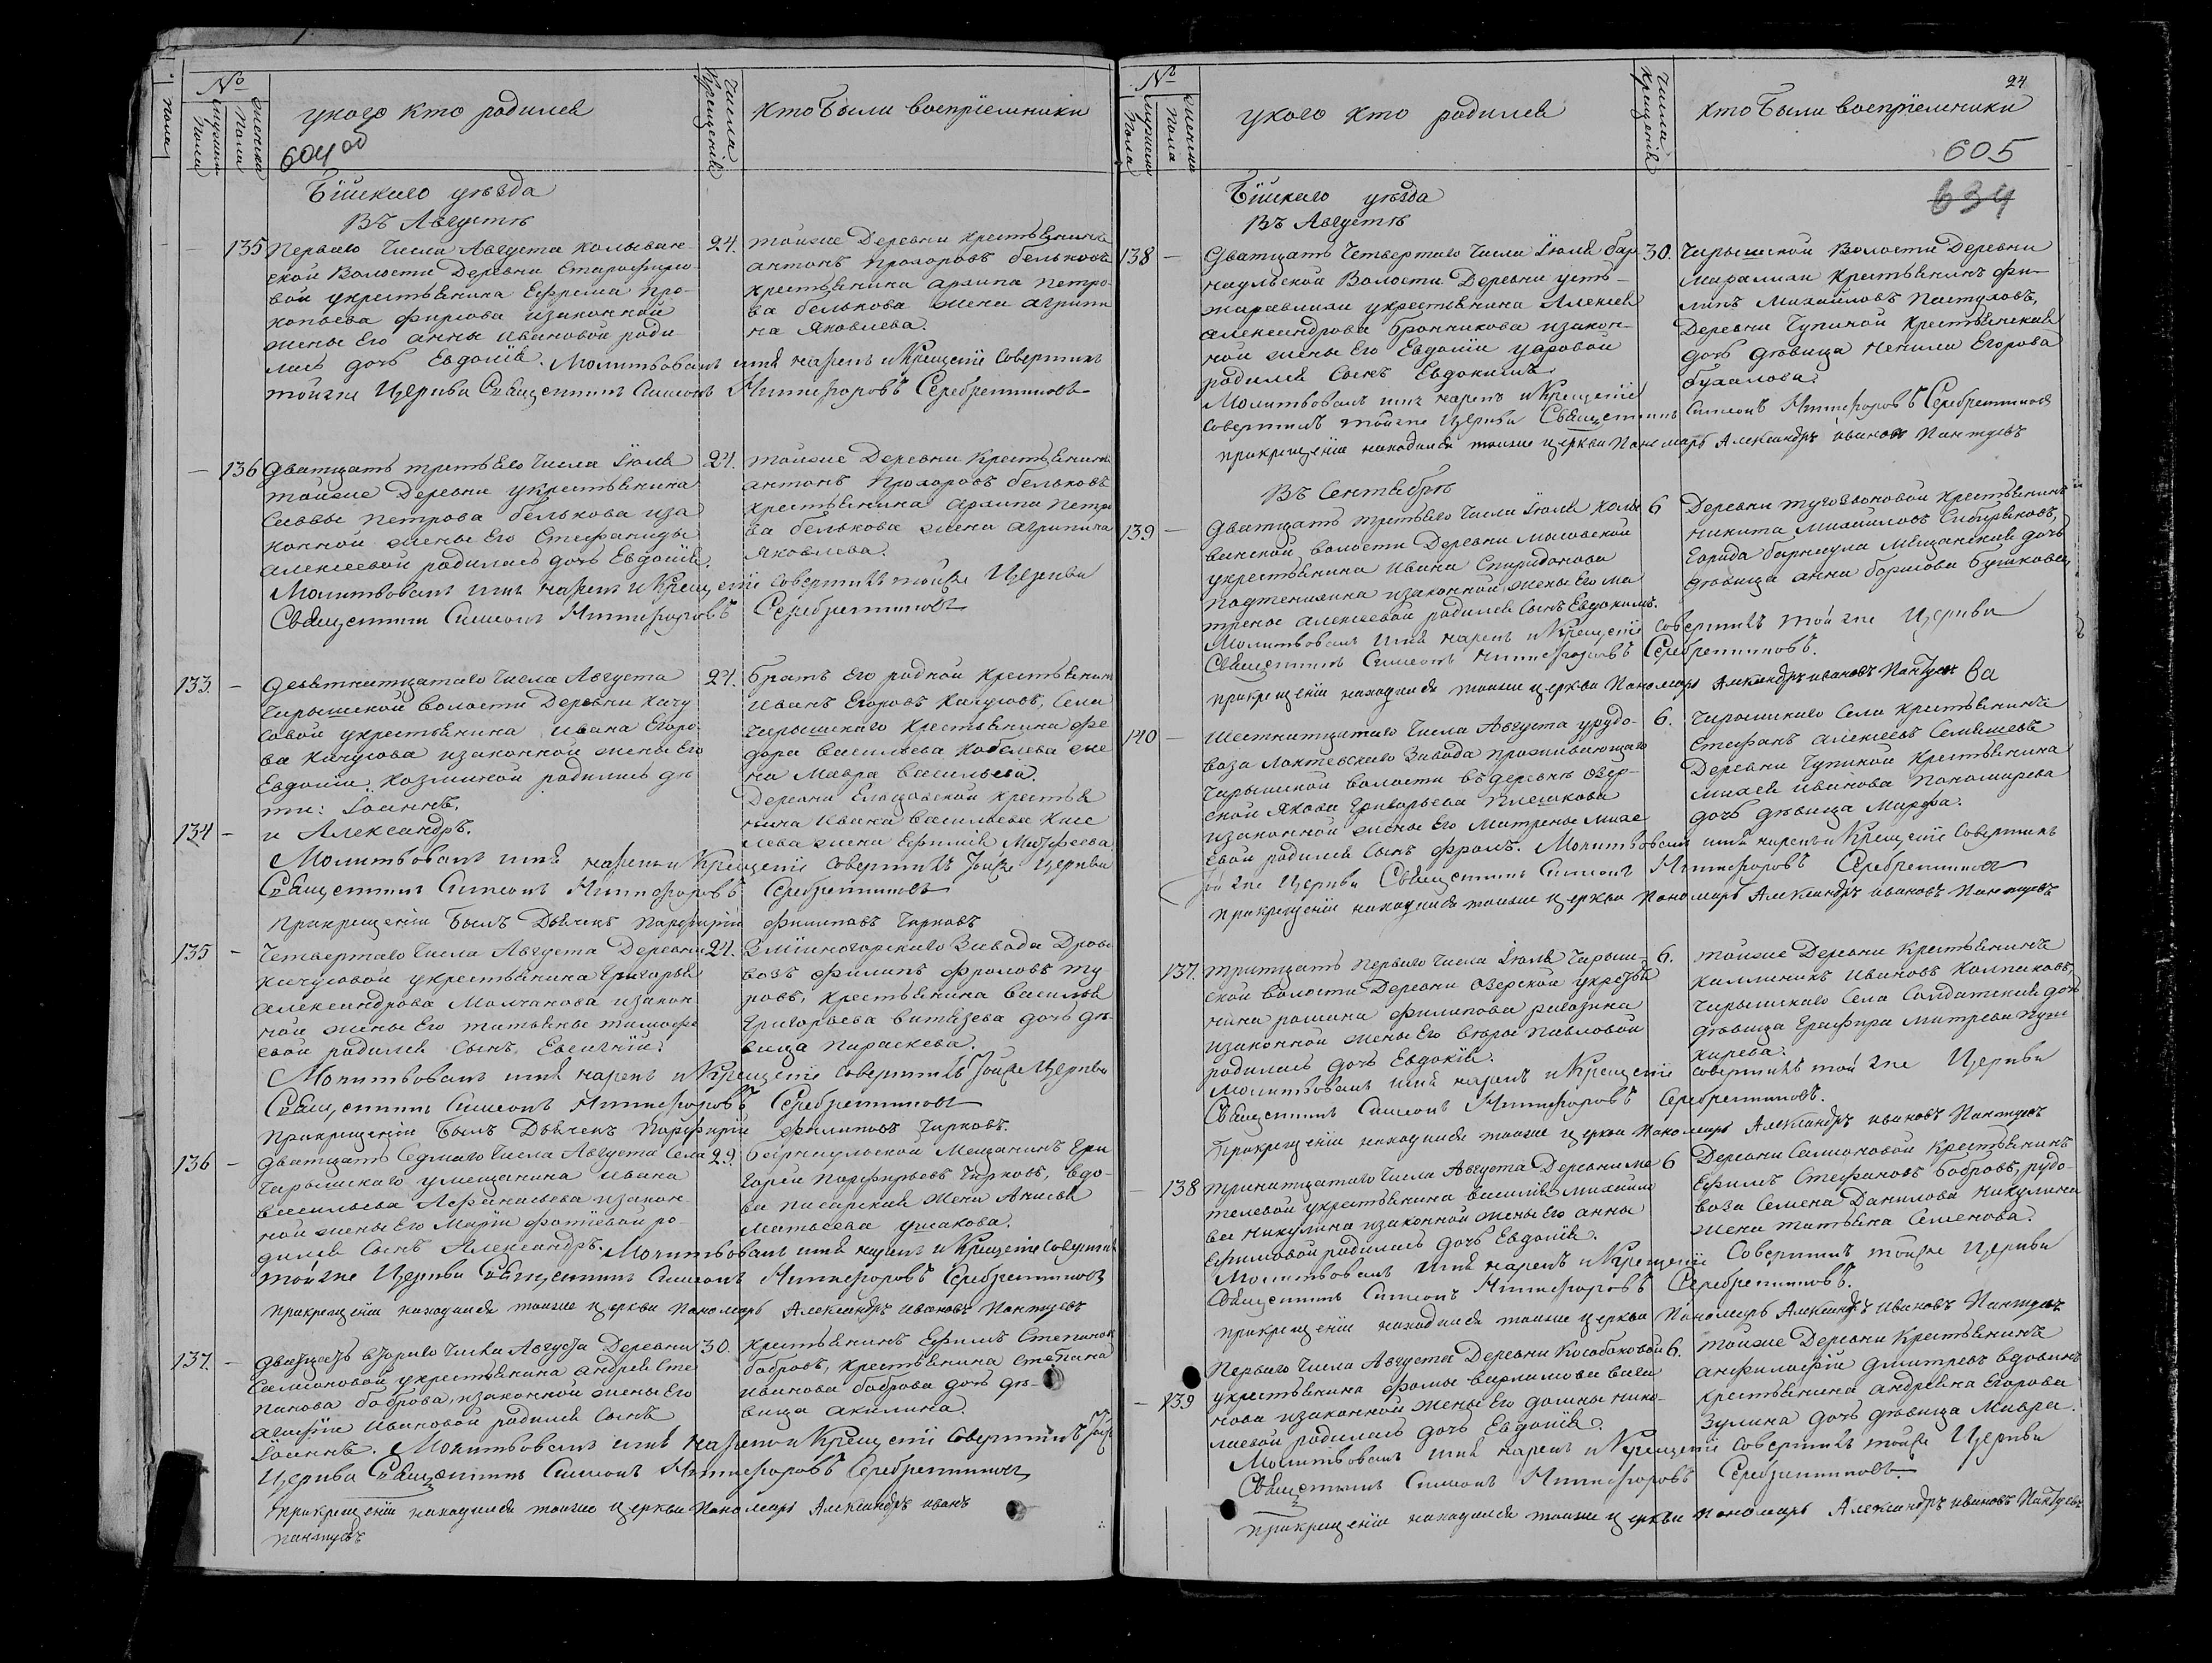 №
Мужеска Пола
Женска Пола
у кого кто родился
604 об
Числа Крещенія
кто были воспріемники
Бійскаго уѣзда
Въ Августѣ
135 Перваго Числа Августа Колыван-
ской Волости Деревни Старофирсо-
вой укрестьянина Ефрема Про-
копьева Фирсова изаконной
жены Его анны ивановой роди
лась дочь Евдокія. Молитвовалъ имя нарекъ и Крещеніе Совершилъ
тойже Церкви Священникъ Симеонъ Никифоровъ Серебренниковъ
24. тойже Деревни крестьянинъ
антонъ Прохоровъ бельковъ
крестьянина архипа петро
ва белькова жена агрипи
на Яковлева.
136 Дватцать третьяго Числа Іюля
тойже Деревни укрестьянина
Саввы петрова белькова иза
конной жены Его Стефаниды
алексеевой родилась дочь Евдокія.
Молитвовалъ имя нарекъ и Крещеніе совершилъ тойже Церкви
Священникъ Симеонъ Никифоровъ Серебренниковъ
24. тойже Деревни Крестьянинъ
антонъ Прохоровъ бельковъ
крестьянина архипа петро
ва белькова жена агрипина
Яковлева.
133. Девятнатцатаго Числа Августа
Чарышской волости Деревни Качу
совой укрестьянина ивана Егоро
ва Качусова изаконной жены Его
Евдокіи Козминой родились дѣ
ти: Іоаннъ,
134 и Александръ.
Молитвовалъ имя нарекъ и Крещеніе совершилъ тойже Церкви
Священникъ Симеонъ Никифоровъ Серебренниковъ
Прикрещеніи былъ Дьячекъ Парфирій филиповъ Чирковъ
24. братъ Его родной крестьянинъ
Иванъ Егоровъ Качусовъ, Села
Чарышскаго Крестьянина фе
дора васильева Кобелева же
на Мавра васильева.
Деревни Ельцовской Крестья
нина ивана васильева Кисе
лева жена Ефимія Матфеева
135 Четвертаго Числа Августа Деревни
Качусовой укрестьянина Григорья
александрова Молчанова изакон
ной жены Его татьяны тимофе
евой родился Сынъ, Евсигній.
Молитвовалъ имя нарекъ и Крещеніе совершилъ тойже Церкви
Священникъ Симеонъ Никифоровъ Серебренниковъ
Прикрещеніи былъ Дьячекъ Парфирій филиповъ Чирковъ.
24. Зміиногорскаго Завода Дрово
возъ филипъ фроловъ ту
ровъ, крестьянина василья
Григорьева витязева дочь дѣ-
вица параскева.
136 Дватцать Седмаго Числа Августа Села
Чарышскаго умещанина ивана
васильева Афанасьева изакон-
ной жены Его Маріи фотіевой ро-
дился Сынъ Александръ. Молитвовалъ имя нарекъ и Крещеніе Совершилъ
тойже Церкви Священникъ Симеонъ Никифоровъ Серебренниковъ
прикрещеніи находился тояже церкви пономарь Александръ ивановъ Пантуевъ
29. барнаульской Мещанинъ Гри
горей Парфирьевъ Чирковъ, вдо-
ва писарская Жена Анисья
Матвеева ушакова.
137. Дватцать втораго Числа Августа Деревни
Самсоновой укрестьянина андрея сте
панова боброва, изаконной жены Его
агафіи ивановой родился Сынъ
Іоаннъ. Молитвовалъ имя нарекъ и Крещеніе Совершилъ тойже
Церкви Священникъ Симеонъ Никифоровъ Серебренниковъ
прикрещеніи находился тояже церкви Пономарь Александръ иванъ
пантуевъ
30. крестьянинъ Ефимъ Степановъ
бобровъ, крестьянина степана
иванова боброва дочь дѣ-
вица акилина.
№
Мужеска Пола
Женска Пола
у кого кто родился
Числа Крещенія
24
кто были воспріемники
605
634
Бійскаго уѣзда
Въ Августѣ
138 Дватцать Четвертаго Числа Іюля бар
наульской Волости Деревни усть-
журавлихи укрестянина Алексея
александрова бронникова изакон-
ной жены Его Евдокіи уаровой
родился Сынъ Евдокимъ.
Молитвовалъ имя нарекъ и Крещеніе
совершилъ тойже Церкви Священникъ Симеонъ Никифоровъ Серебренниковъ
прикрещеніи находился тояже церкви Пономарь Александръ ивановъ Пантуевъ
30. Чарышской Волости Деревни
Маралихи крестьянинъ фи-
липъ Михайловъ Пастуховъ,
Деревни Чупиной крестьянская
дочь дѣвица Ненила Егорова
бухалова.
Въ Сентябрѣ
139 Дватцать третьяго Числа Іюля Колы
ванской волости Деревни Масовской
укрестьянина ивана Спиридонова
Лодженихина изаконной жены Его ма
трены алексеевой родился Сынъ Евдокимъ.
Молитвовалъ имя нарекъ и Крещеніе совершилъ тойже Церкви
Священникъ Симеонъ Никифоровъ Серебренниковъ.
прикрещеніи находился тояже церкви Пономарь Александръ ивановъ Пантуевъ
6 Деревни тугозвоновой Крестьянинъ
никита Михайловъ Сибиряковъ,
Города барнаула мещанская дочь
дѣвица анна борисова бушкова
140 Шестнатцатаго Числа Августа урудо-
воза Локтевскаго Завода проживающаго
Чарышской волости въ деревнѣ озер-
ской Якова Григорьева Плешкова
изаконной жены Его Матрены Михе
евой родился Сынъ Фролъ. Молитвовалъ имя нарекъ и Крещеніе Совершилъ
той же Церкви Священникъ Симеонъ Никифоровъ Серебренниковъ
прикрещеніи находился тояже церкви Пономарь Александръ ивановъ Пантуевъ
6. Чарышскаго Села крестьянинъ
Стефанъ алексеевъ
Деревни Чупиной Крестьянина
михея иванова Пономарева
дочь дѣвица Марфа.
137. тритцать перваго Числа Іюля Чарыш-
ской волости Деревни озерской укресть
нина романа филипова рагозина
изаконной жены Его Павловой
родилась дочь Евдокія.
молитвовалъ имя нарекъ и Крещеніе совершилъ той же Церкви
Священникъ Симеонъ Никифоровъ Серебренниковъ.
прикрещеніи находился тояже церкви пономарь Александръ ивановъ Пантуевъ
6. тойже Деревни Крестьянинъ
каллиникъ ивановъ Колпаковъ,
Чарышскаго Села Солдатская дочь
дѣвица Митрева
138 тринатцатаго Числа Августа Деревни ме
телевой укрестьянина василія михайло
ва Никулина изаконной жены Его анны
Ефимовой родилась дочь Евдокія.
Молитвовалъ имя нарекъ и Крещеніе Совершилъ тойже Церкви
Священникъ Симеонъ Никифоровъ Серебренниковъ.
прикрещеніи находился тояже церкви Пономарь Александръ ивановъ Пантуевъ
6 Деревни Самсоновой Крестьянинъ
Ефимъ Стефановъ бобровъ, рудо-
воза Семена Данилова Никулина
жена татьяна Семенова.
139 Перваго Числа Августа Деревни Кособоковой
укрестьянина фомы варламова
нова изаконной жены Его домны Нико-
лаевой родилась дочь Евдокія.
Молитвовалъ имя нарекъ и Крещеніе совершилъ тойже Церкви
Священникъ Симеонъ Никифоровъ Серебренниковъ.
прикрещеніи находился тояже церкви пономарь Александръ ивановъ Пантуевъ
6. тойже Деревни Крестьянинъ
анфилофій дмитревъ вдовинъ
крестьянина андреяна Егорова
Зулина дочь дѣвица Мавра.